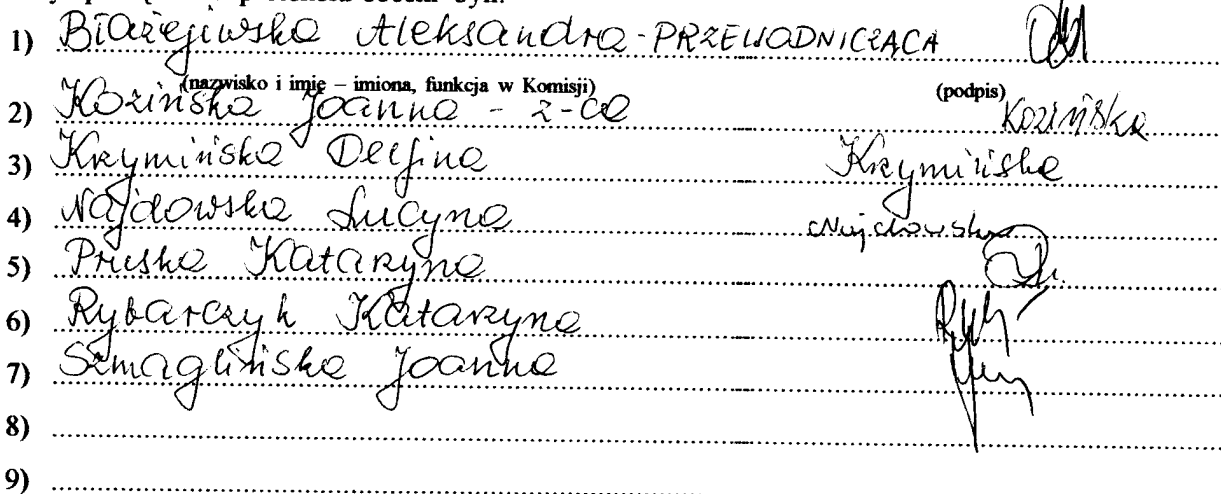 1) Błażejewska Aleksandra - PRZEWODNICZĄCA
(nazwisko i imię – imiona, funkcja w Komisji) (podpis)
2) Kozińska Joanna - z-ca Kozińska
3) Krymińska Delfina Krymińska
4) Najdowska Lucyna Najdowska
5) Pruska Katarzyna
6) Rybarczyk Katarzyna
7) Szmaglińska Joanna
8)
9)